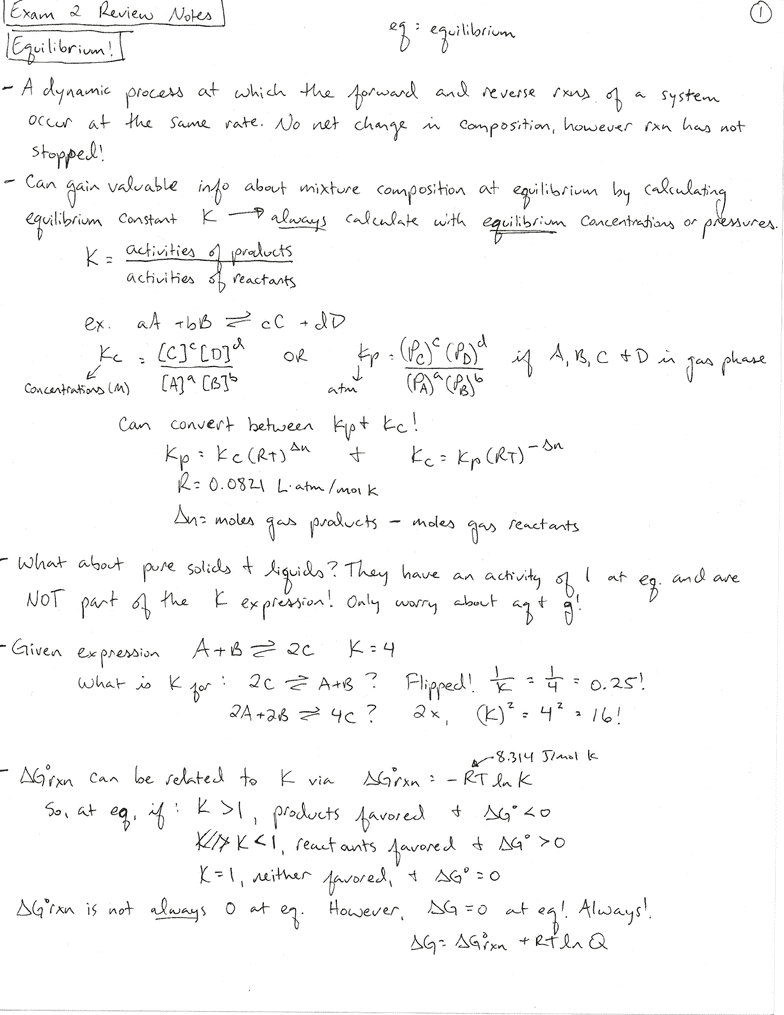 Exam 2 Review Notes
eq : equilibrium
1
Equilibrium!
- A dynamic process at which the forward and reverse rxns of a system
occur at the same rate. No net change in composition, however rxn has not
stopped!
- Can gain valuable info about mixture composition at equilibrium by calculating
equilibrium constant K → always calculate with equilibrium concentrations or pressures.
K = activities of products / activities of reactants
ex. aA + bB ⇌ cC + dD
Kc = [C]^c [D]^d / [A]^a [B]^b OR Kp = (Pc)^c (PD)^d / (PA)^a (PB)^b if A, B, C + D in gas phase
concentrations (M) atm
Can convert between Kp + Kc!
Kp = Kc (RT)^Δn + Kc = Kp (RT)^-Δn
R = 0.0821 L·atm/mol K
Δn = moles gas products - moles gas reactants
- What about pure solids + liquids? They have an activity of 1 at eq. and are
NOT part of the K expression! Only worry about aq + g!
- Given expression A + B ⇌ 2C K = 4
What is K for : 2C ⇌ A + B ? Flipped! 1/K = 1/4 = 0.25!
2A + 2B ⇌ 4C ? 2x, (K)² = 4² = 16!
8.314 J/mol K
- ΔG°rxn can be related to K via ΔG°rxn = -RT ln K
So, at eq, if : K > 1, products favored + ΔG° < 0
K < 1, reactants favored + ΔG° > 0
K = 1, neither favored, + ΔG° = 0
ΔG°rxn is not always 0 at eq. However, ΔG = 0 at eq! Always!
ΔG = ΔG°rxn + RT ln Q